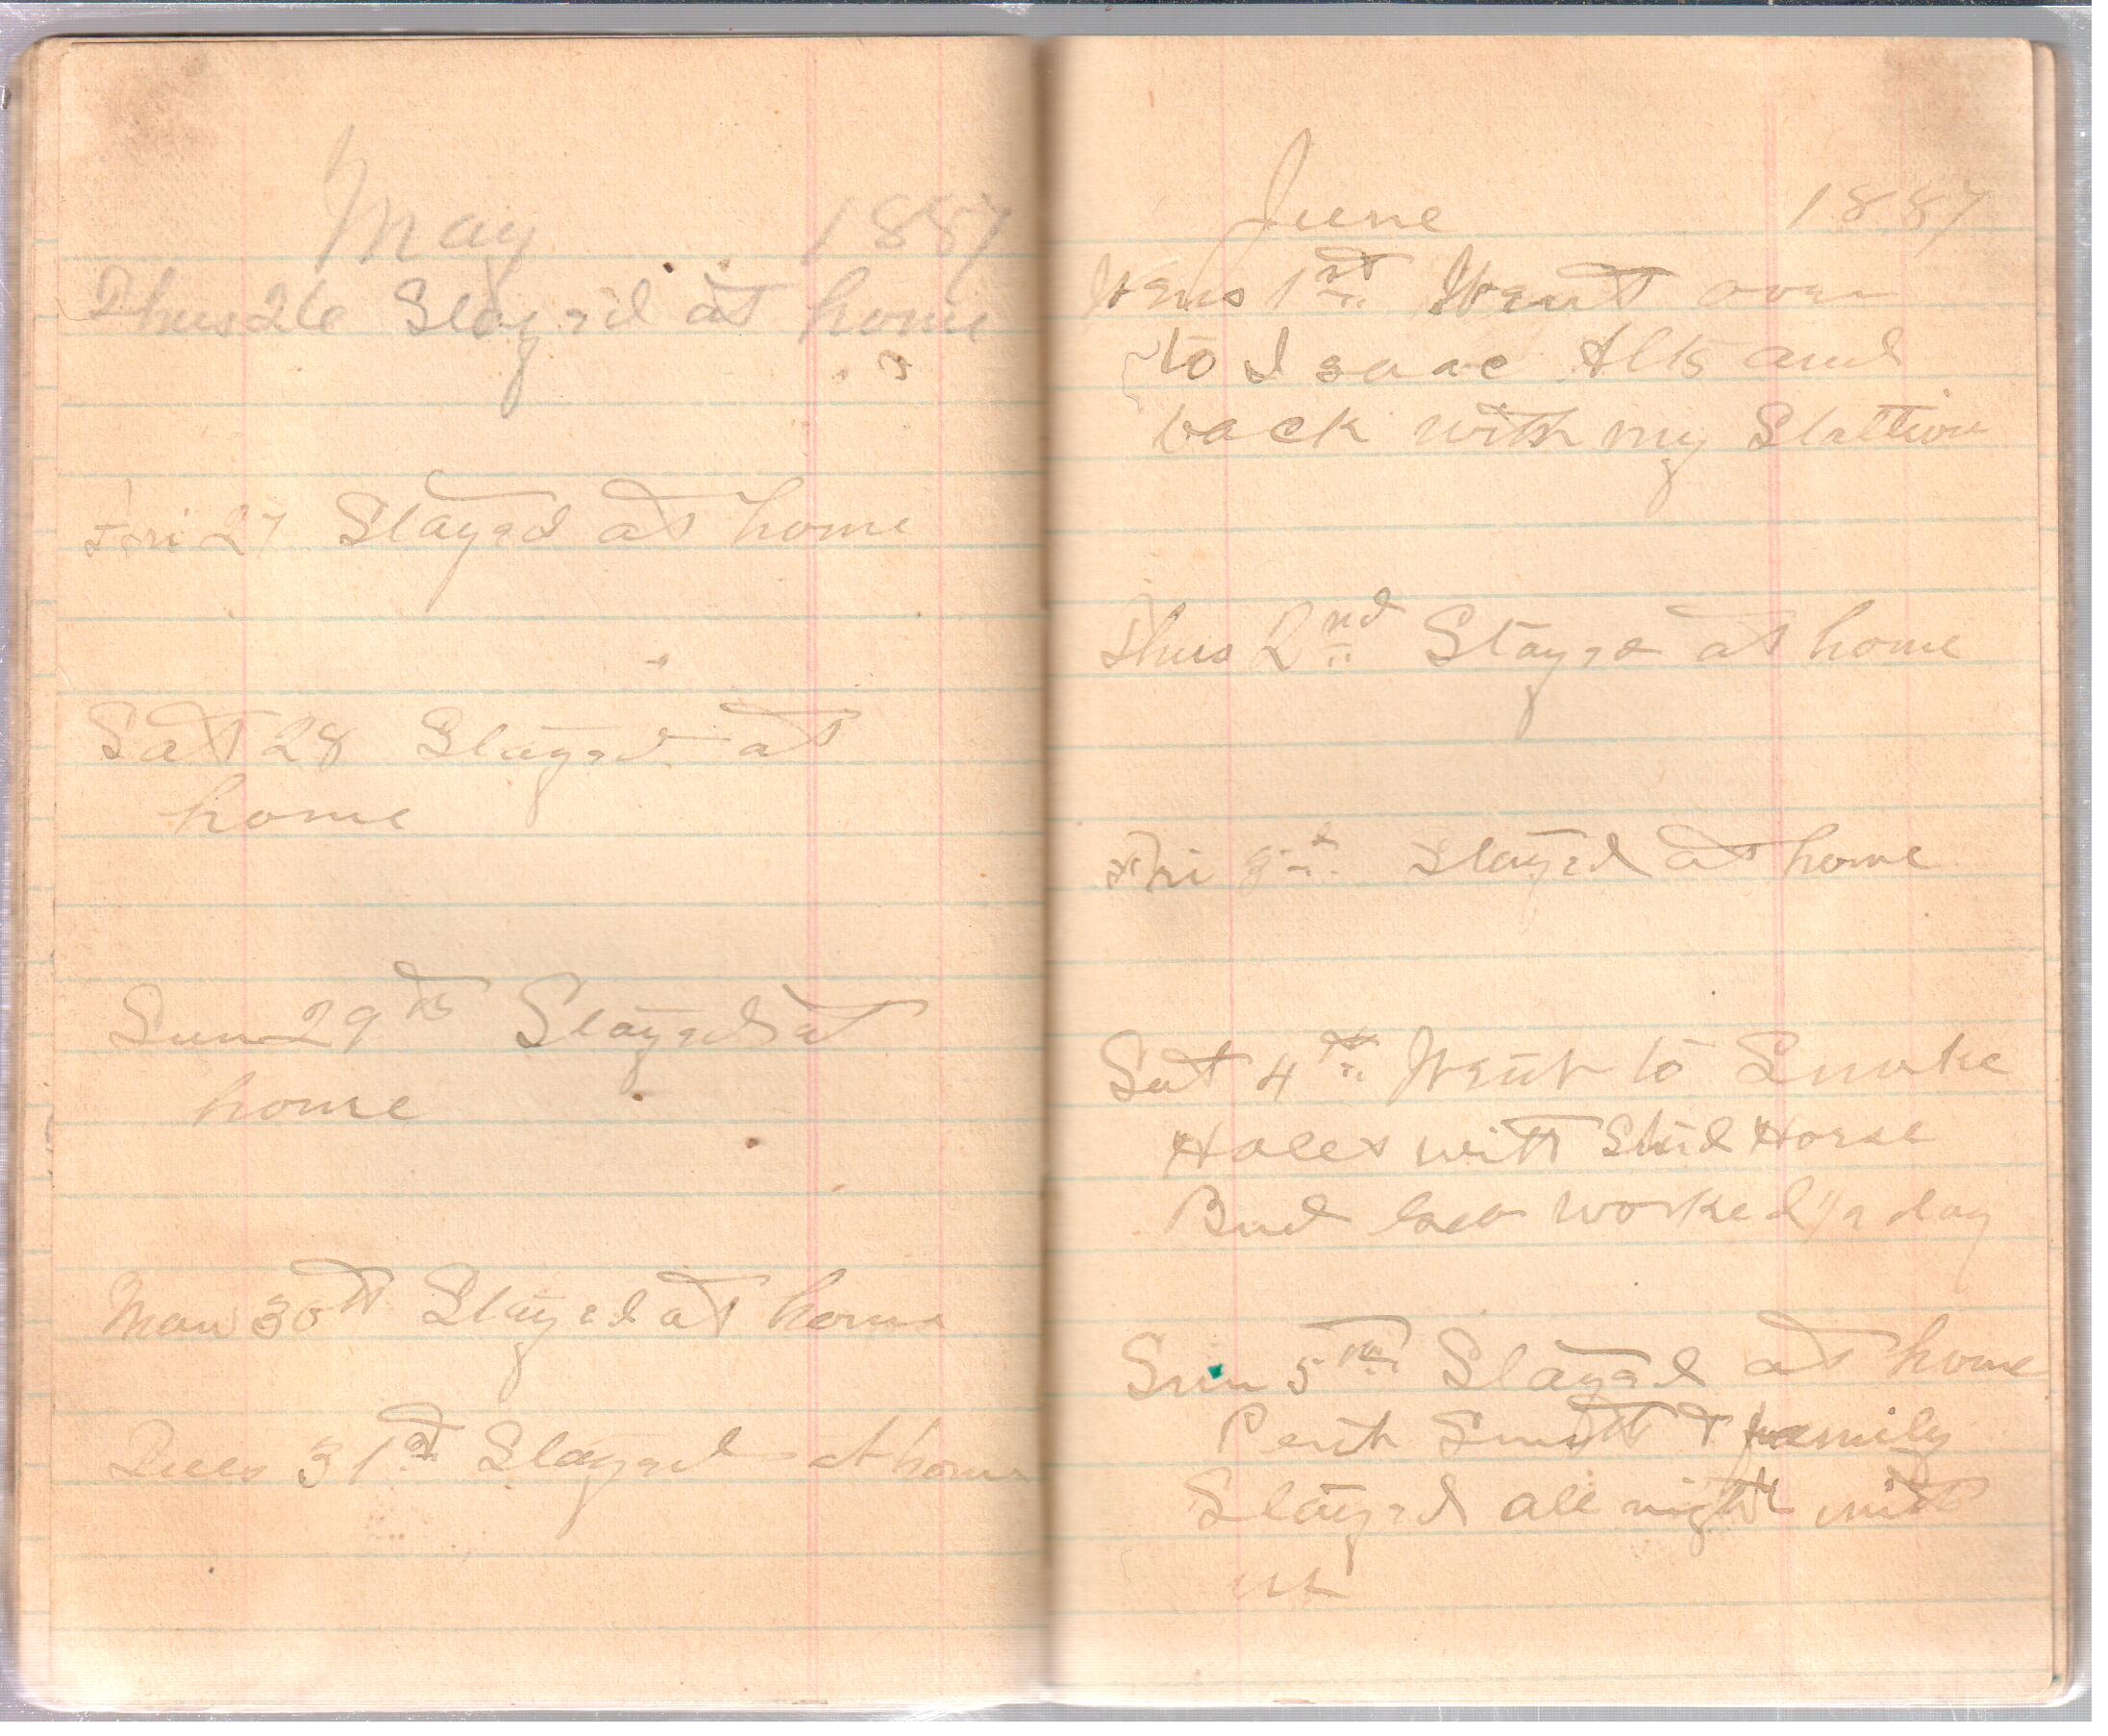 May 1887
Thus 26 Stayed at home
Fri 27 Stayed at home
Sat 28 Stayed at
home
Sun 29th Stayed at
home
Mon 30th Stayed at home
Tues 31st Stayed at home
June 1887
Wens 1st Went over
to Isaac Alts and
back with my Stattion
Thus 2nd Stayed at home
Fri 3rd Stayed at home
Sat 4th Went to Smoke
Holes with Stud Horse
Bud worked 1/2 day
Sun 5th Stayed at home
Smith & family
Stayed all night with
us